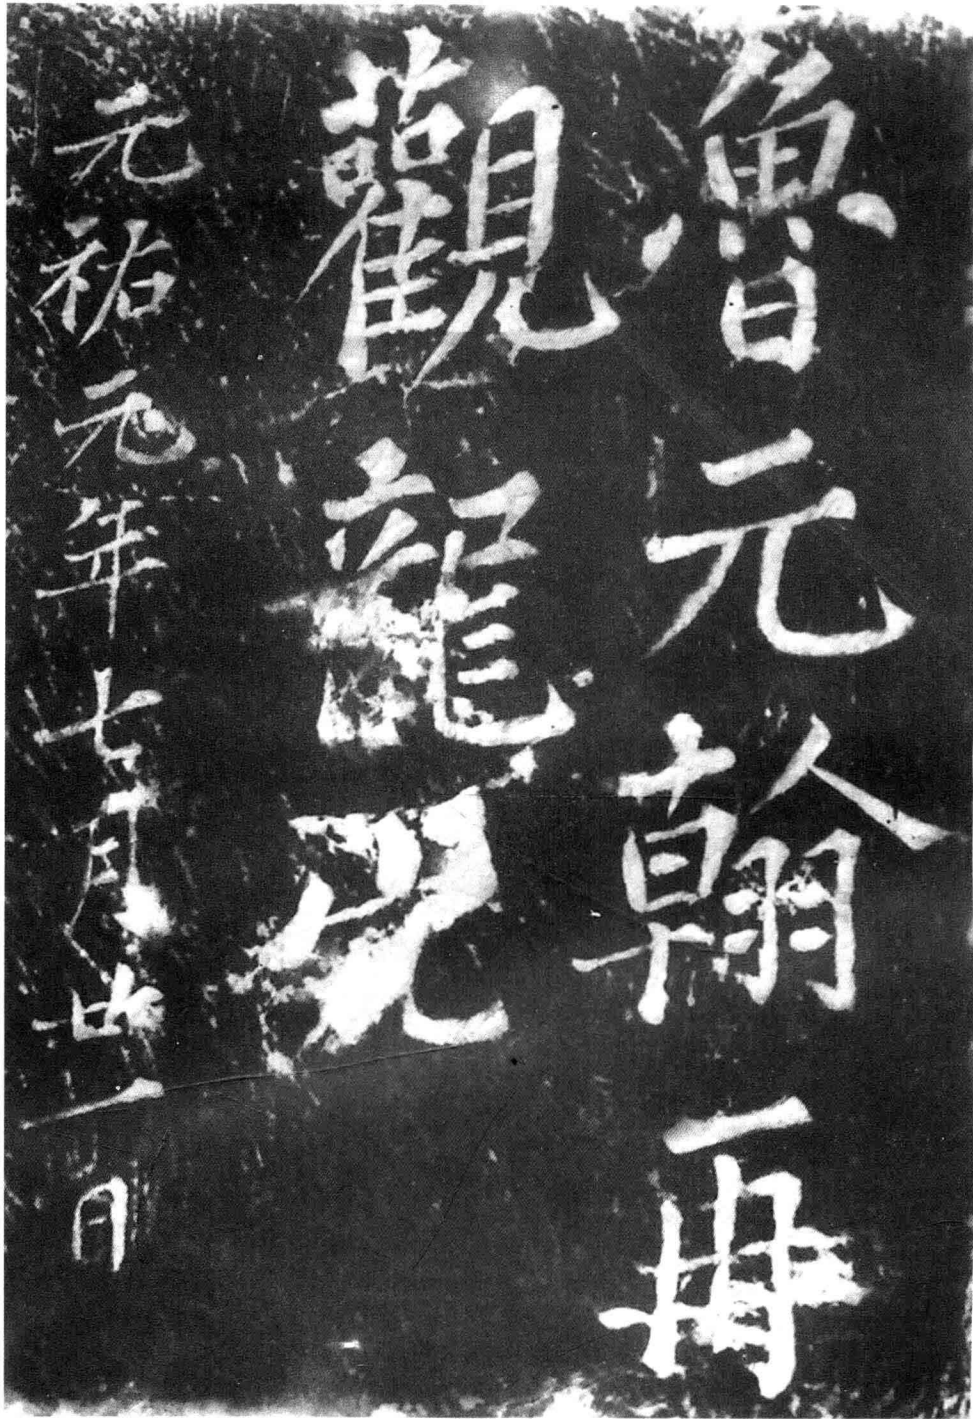 魯元翰再
觀龍
元祐元年七月廿一日